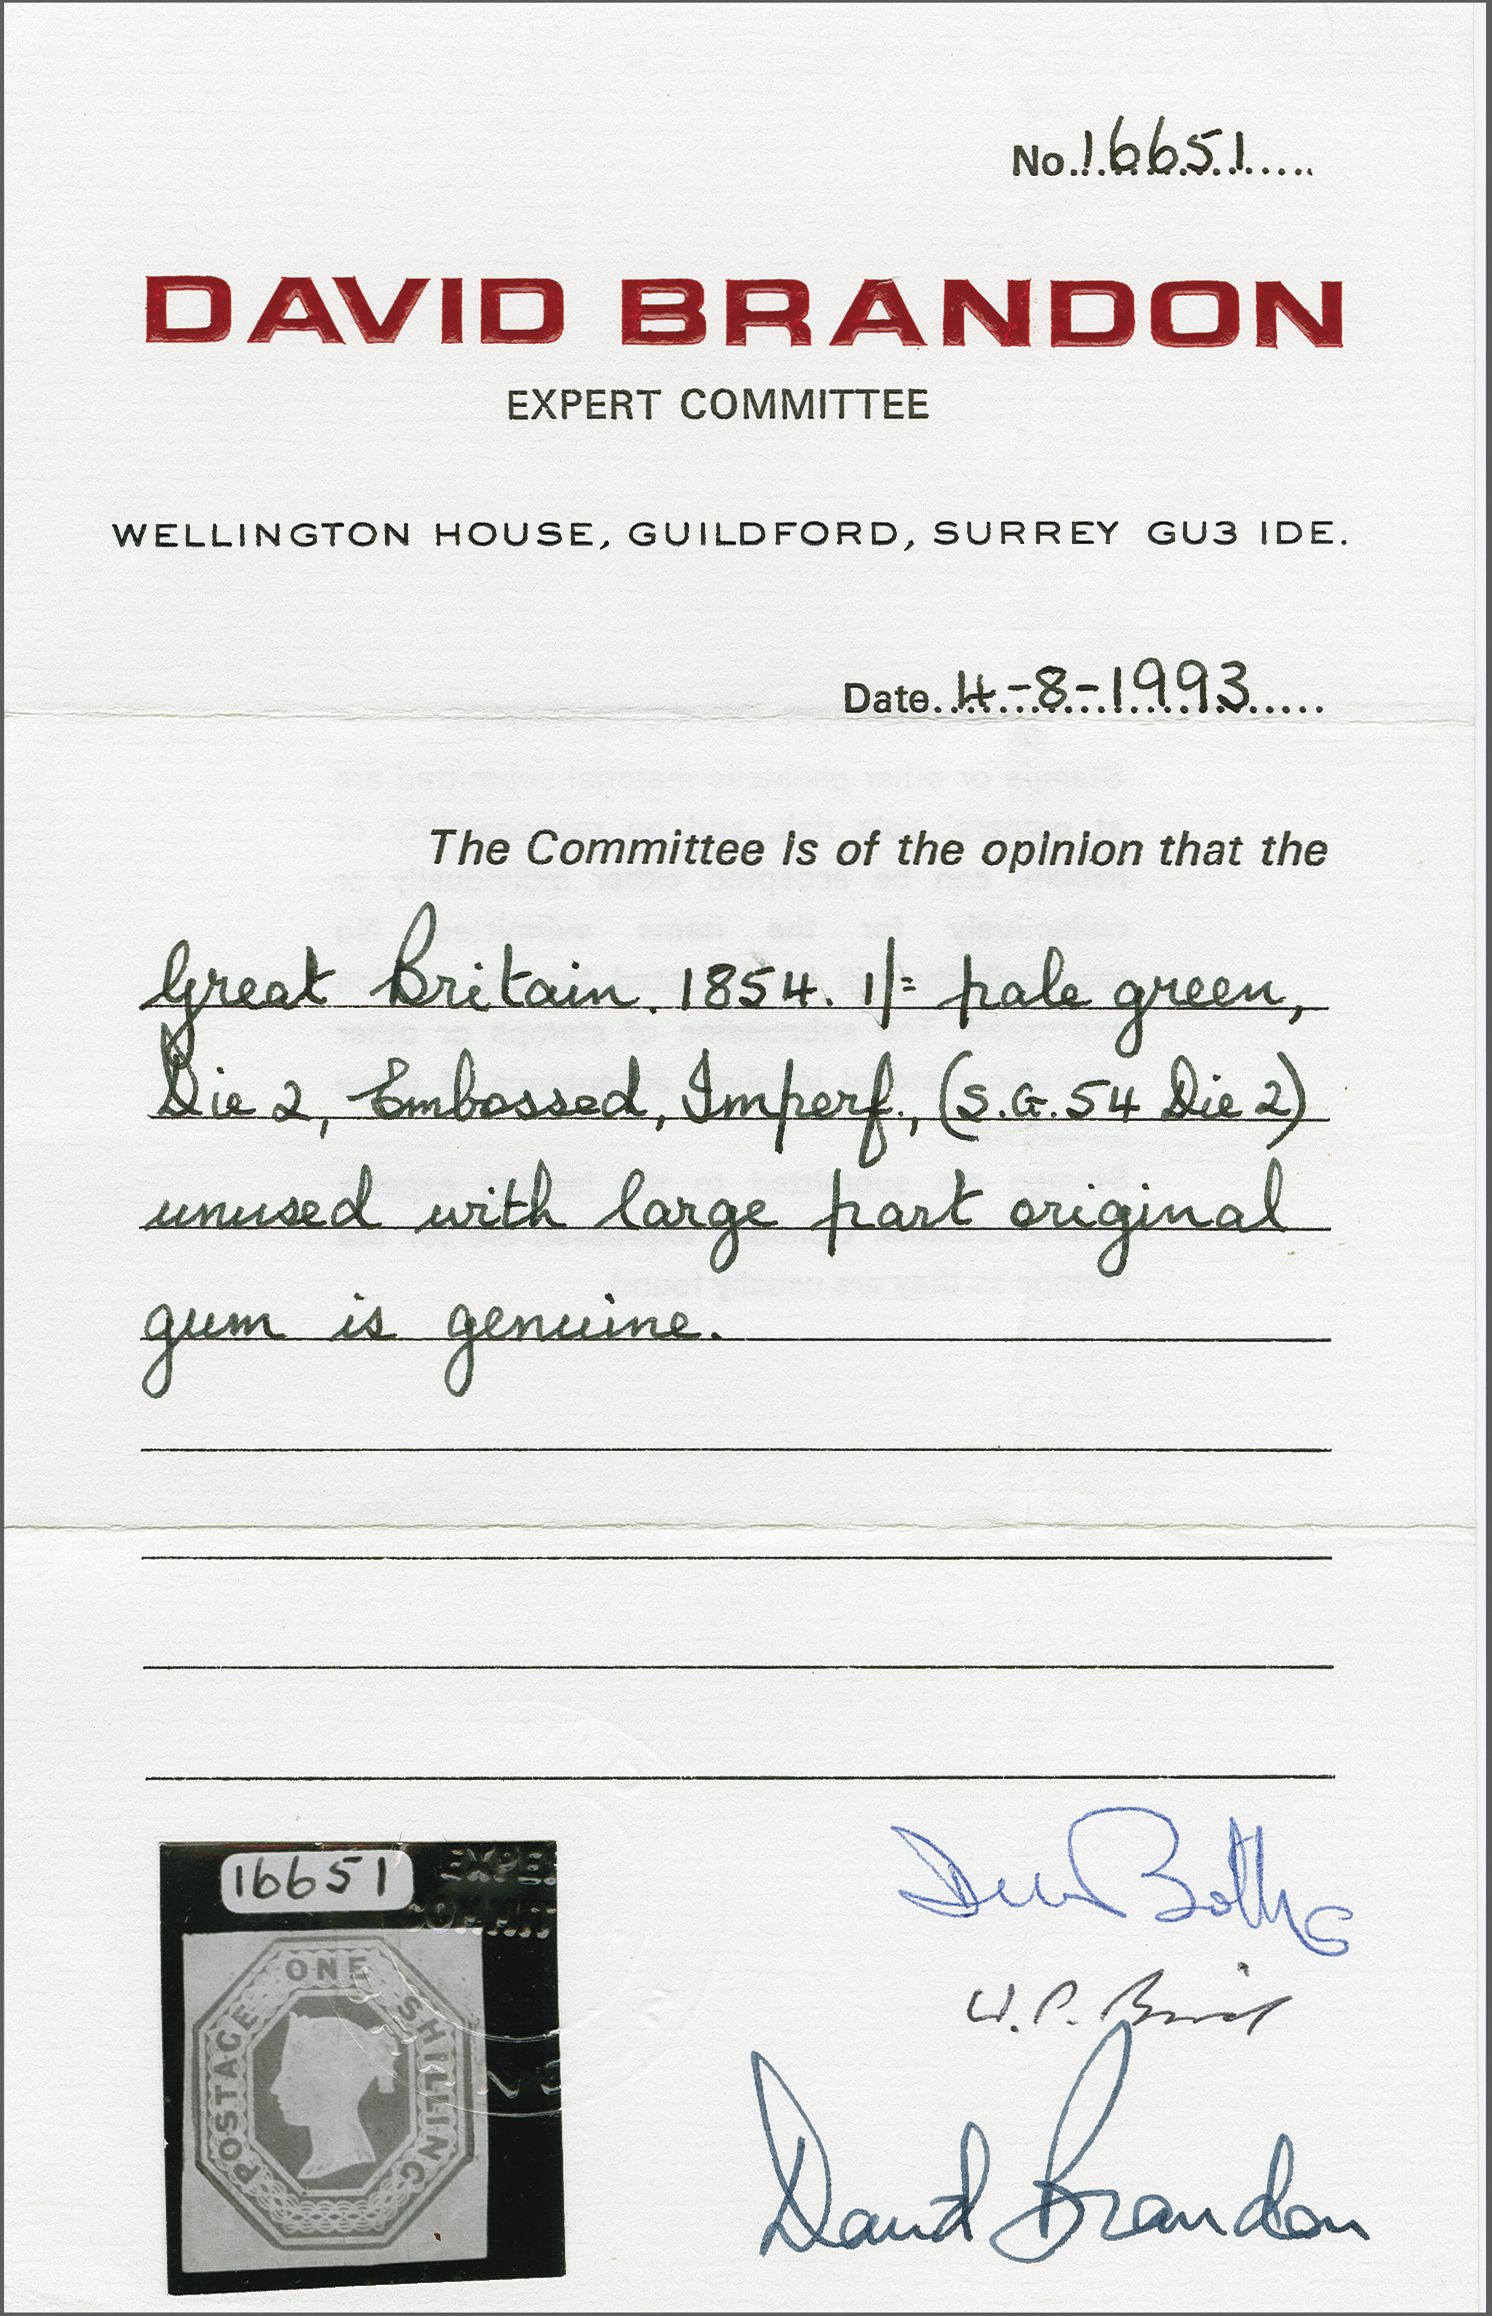 No. 16651
DAVID BRANDON
EXPERT COMMITTEE
WELLINGTON HOUSE, GUILDFORD, SURREY GU3 1DE.
Date. 4-8-1993
The Committee is of the opinion that the
Great Britain. 1854. 1/= pale green,
Die 2, Embossed, Imperf., (S.G. 54 Die 2)
unused with large part original
gum is genuine.
16651
EXPE
COMMIT
ONE SHILLING
POSTAGE
David Brandon